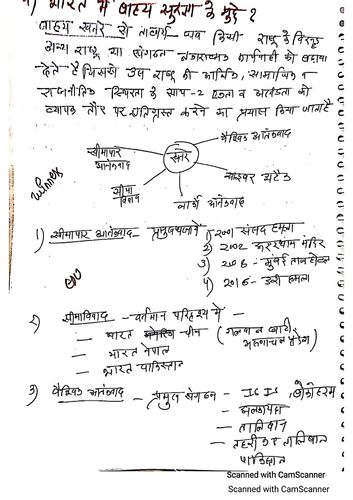 भारत में बाह्य सुरक्षा के मुद्दे ?
बाह्य खतरे से तात्पर्य जब किसी राष्ट्र के विरुद्ध
अन्य राष्ट्र या संगठन नकारात्मक कार्यवाही को बढ़ावा
देते है जिससे उस राष्ट्र की आर्थिक, सामाजिक व
राजनीतिक स्थिरता के साथ-2 एकता व अखंडता को
व्यापक तौर पर क्षतिग्रस्त करने का प्रयास किया जाता है
वैश्विक आतंकवाद
सीमापार
आतंकवाद
खतरे
साइबर अटैक
सीमा
विवाद
आतंकवाद
1) सीमापार आतंकवाद - प्रमुख घटनाएं
1) 2001 संसद हमला
2) 2002 मंदिर
3) मुंबई ताज होटल
4) 2016 - उरी हमला
2) सीमाविवाद - वर्तमान परिदृश्य में -
- भारत चीन (गलवान घाटी
अरुणाचल प्रदेश)
- भारत नेपाल
- भारत पाकिस्तान
3) वैश्विक आतंकवाद - प्रमुख संगठन - ISIS, बोकोहरम
- अलकायदा
- तालिबान
- तहरीक ए तालिबान
पाकिस्तान
Scanned with CamScanner
Scanned with CamScanner